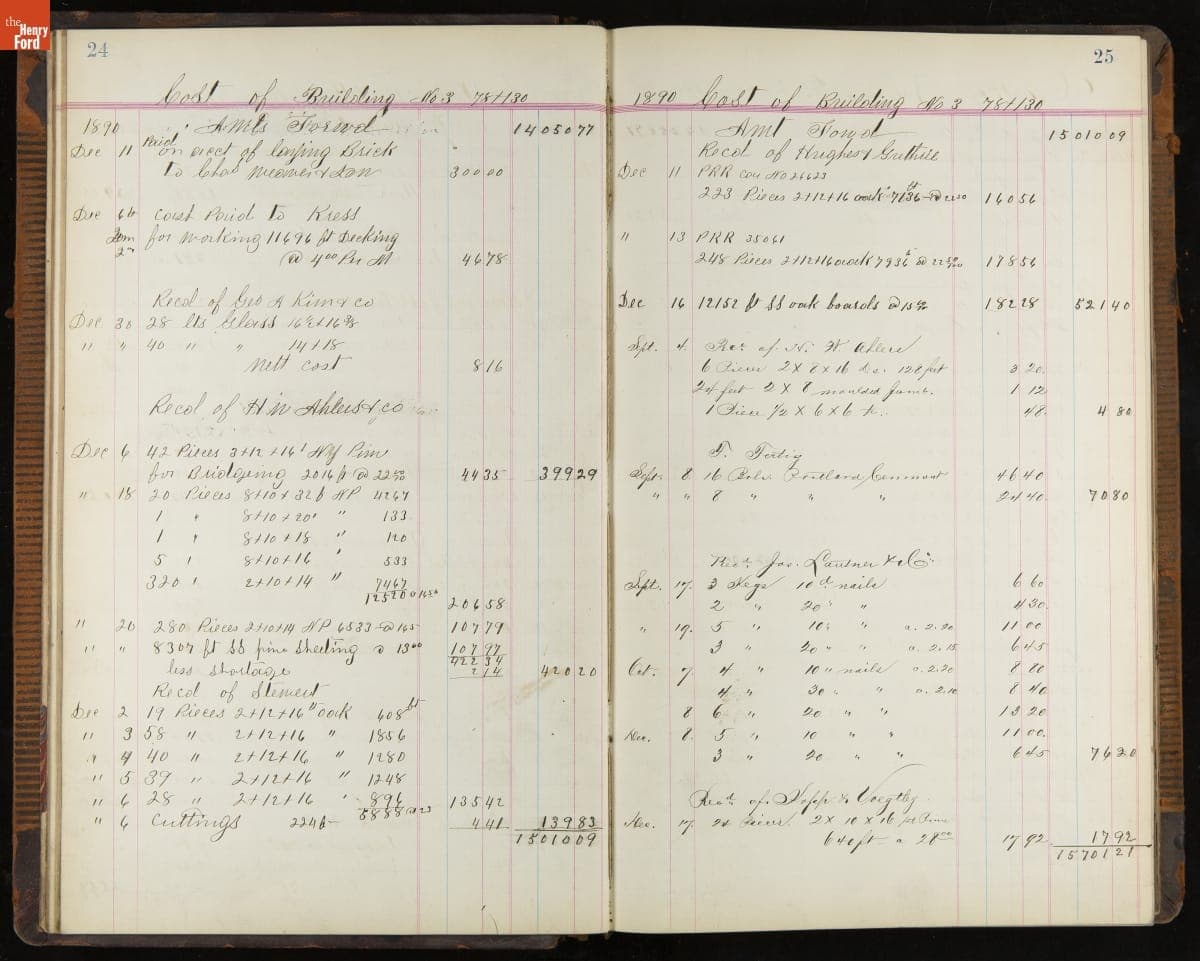 the
Henry
Ford
24
Cost of Building No 3 78+130
1890 Amts Forwd 1405077
Dec 11 Paid on acct of laying Brick
to Chas & Son 30000
Dec 6th Cash Paid to Kress
for Working 11696 ft Decking
@ 4.00 Per M 4678
Recd of Geo A Kim & co
Dec 30 28 Lts Glass
" " 40 " " 14+18
Nett Cost 816
Recd of H W Ahlers & co
Dec 6 42 Pieces 3+12+16'
for Bridgeing 2016 ft @ 22 00 4435 39929
" 18 20 Pieces 8+10+32 ft NP 4267
1 " 8+10+20' " 133
1 " 8+10+18 " 120
5 " 8+10+16 " 533
320 " 2+10+14 " 7467
12520 @ 16 50
20658
" 20 280 Pieces 2+10+14 NP 6533 @ 165 10779
" " 8307 ft SS pine Sheeting @ 1300 10797
42234
less shortage 214 42020
Recd of Stewert
Dec 2 19 Pieces 2+12+16" oak 608 ft
" 3 58 " 2+12+16 " 1856
" 4 40 " 2+12+16 " 1280
" 5 39 " 2+12+16 " 1248
" 6 28 " 2+12+16 " 896 13542
5888 @ 23
" 6 Cuttings 2246 441 13983
1501009
25
1890 Cost of Building No 3 78+130
Amt Forwd 1501009
Recd of Hughes & Guthrie
Dec 11 PRR Car No 26623
223 Pieces 2+12+16 oak 7136 ft @ 22 50 16056
" 13 PRR 35061
248 Pieces 2+12+16 oak 7936 ft @ 22 50 17856
Dec 16 12152 ft SS oak boards @ 15 00 18228 52140
Sept. 4. Rec. of N. W. Ahlers
6 Pieces 2 X 8 X 16 Do. 128 feet 3 20
24 feet 2 X 8 moulded Jamb. 1 12
1 Piece 1/2 X 6 X 6 48 4 80
F. Fertig
Sept. 8 16 Bbls. Portland Cemment 46 40
" " 8 " " " 24 40 70 80
Recd. Jas. Lautner & Co.
Sept. 17. 3 Kegs 10d nails 6 60
2 " 20 " " 4 30
" 19. 5 " 10 " " a. 2.20 11 00
3 " 20 " " a. 2.15 6 45
Oct. 7. 4 " 10 " nails a. 2.20 8 80
4 " 30 " " a. 2.10 8 40
8 6 " 20 " " 13 20
Dec. 8. 5 " 10 " " 11 00
3 " 20 " " 6 45 76 20
Recd. of Voegtly.
Dec. 17. 24 Pieces. 2 X 10 X 16
640 ft a 28 00 17 92 17 92
1570121